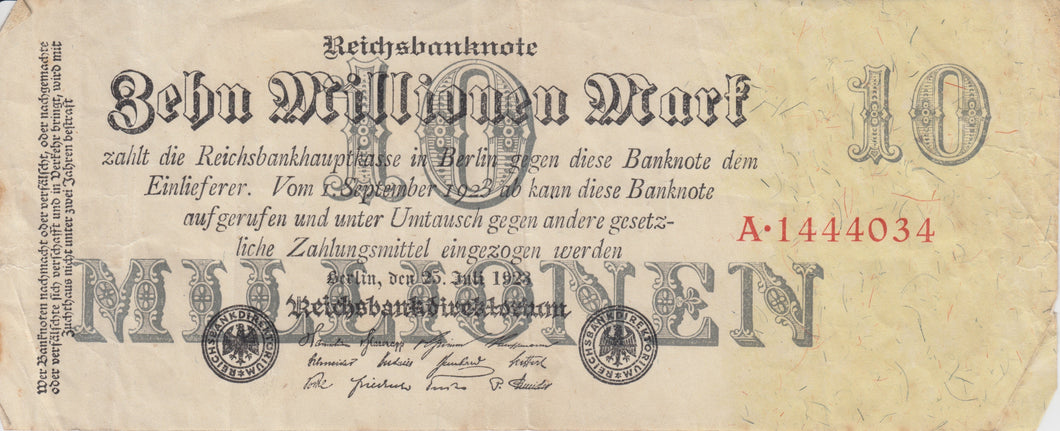 Reichsbanknote
Zehn Millionen Mark
10
10
zahlt die Reichsbankhauptkasse in Berlin gegen diese Banknote dem
Einlieferer. Vom 1. September 1923 ab kann diese Banknote
aufgerufen und unter Umtausch gegen andere gesetz-
liche Zahlungsmittel eingezogen werden
A·1444034
MILLIONEN
Berlin, den 25. Juli 1923
Reichsbankdirektorium
REICHSBANKDIREKTORIUM
REICHSBANKDIREKTORIUM
Wer Banknoten nachmacht oder verfälscht, oder nachgemachte
oder verfälschte sich verschafft und in Verkehr bringt, wird mit
Zuchthaus nicht unter zwei Jahren bestraft